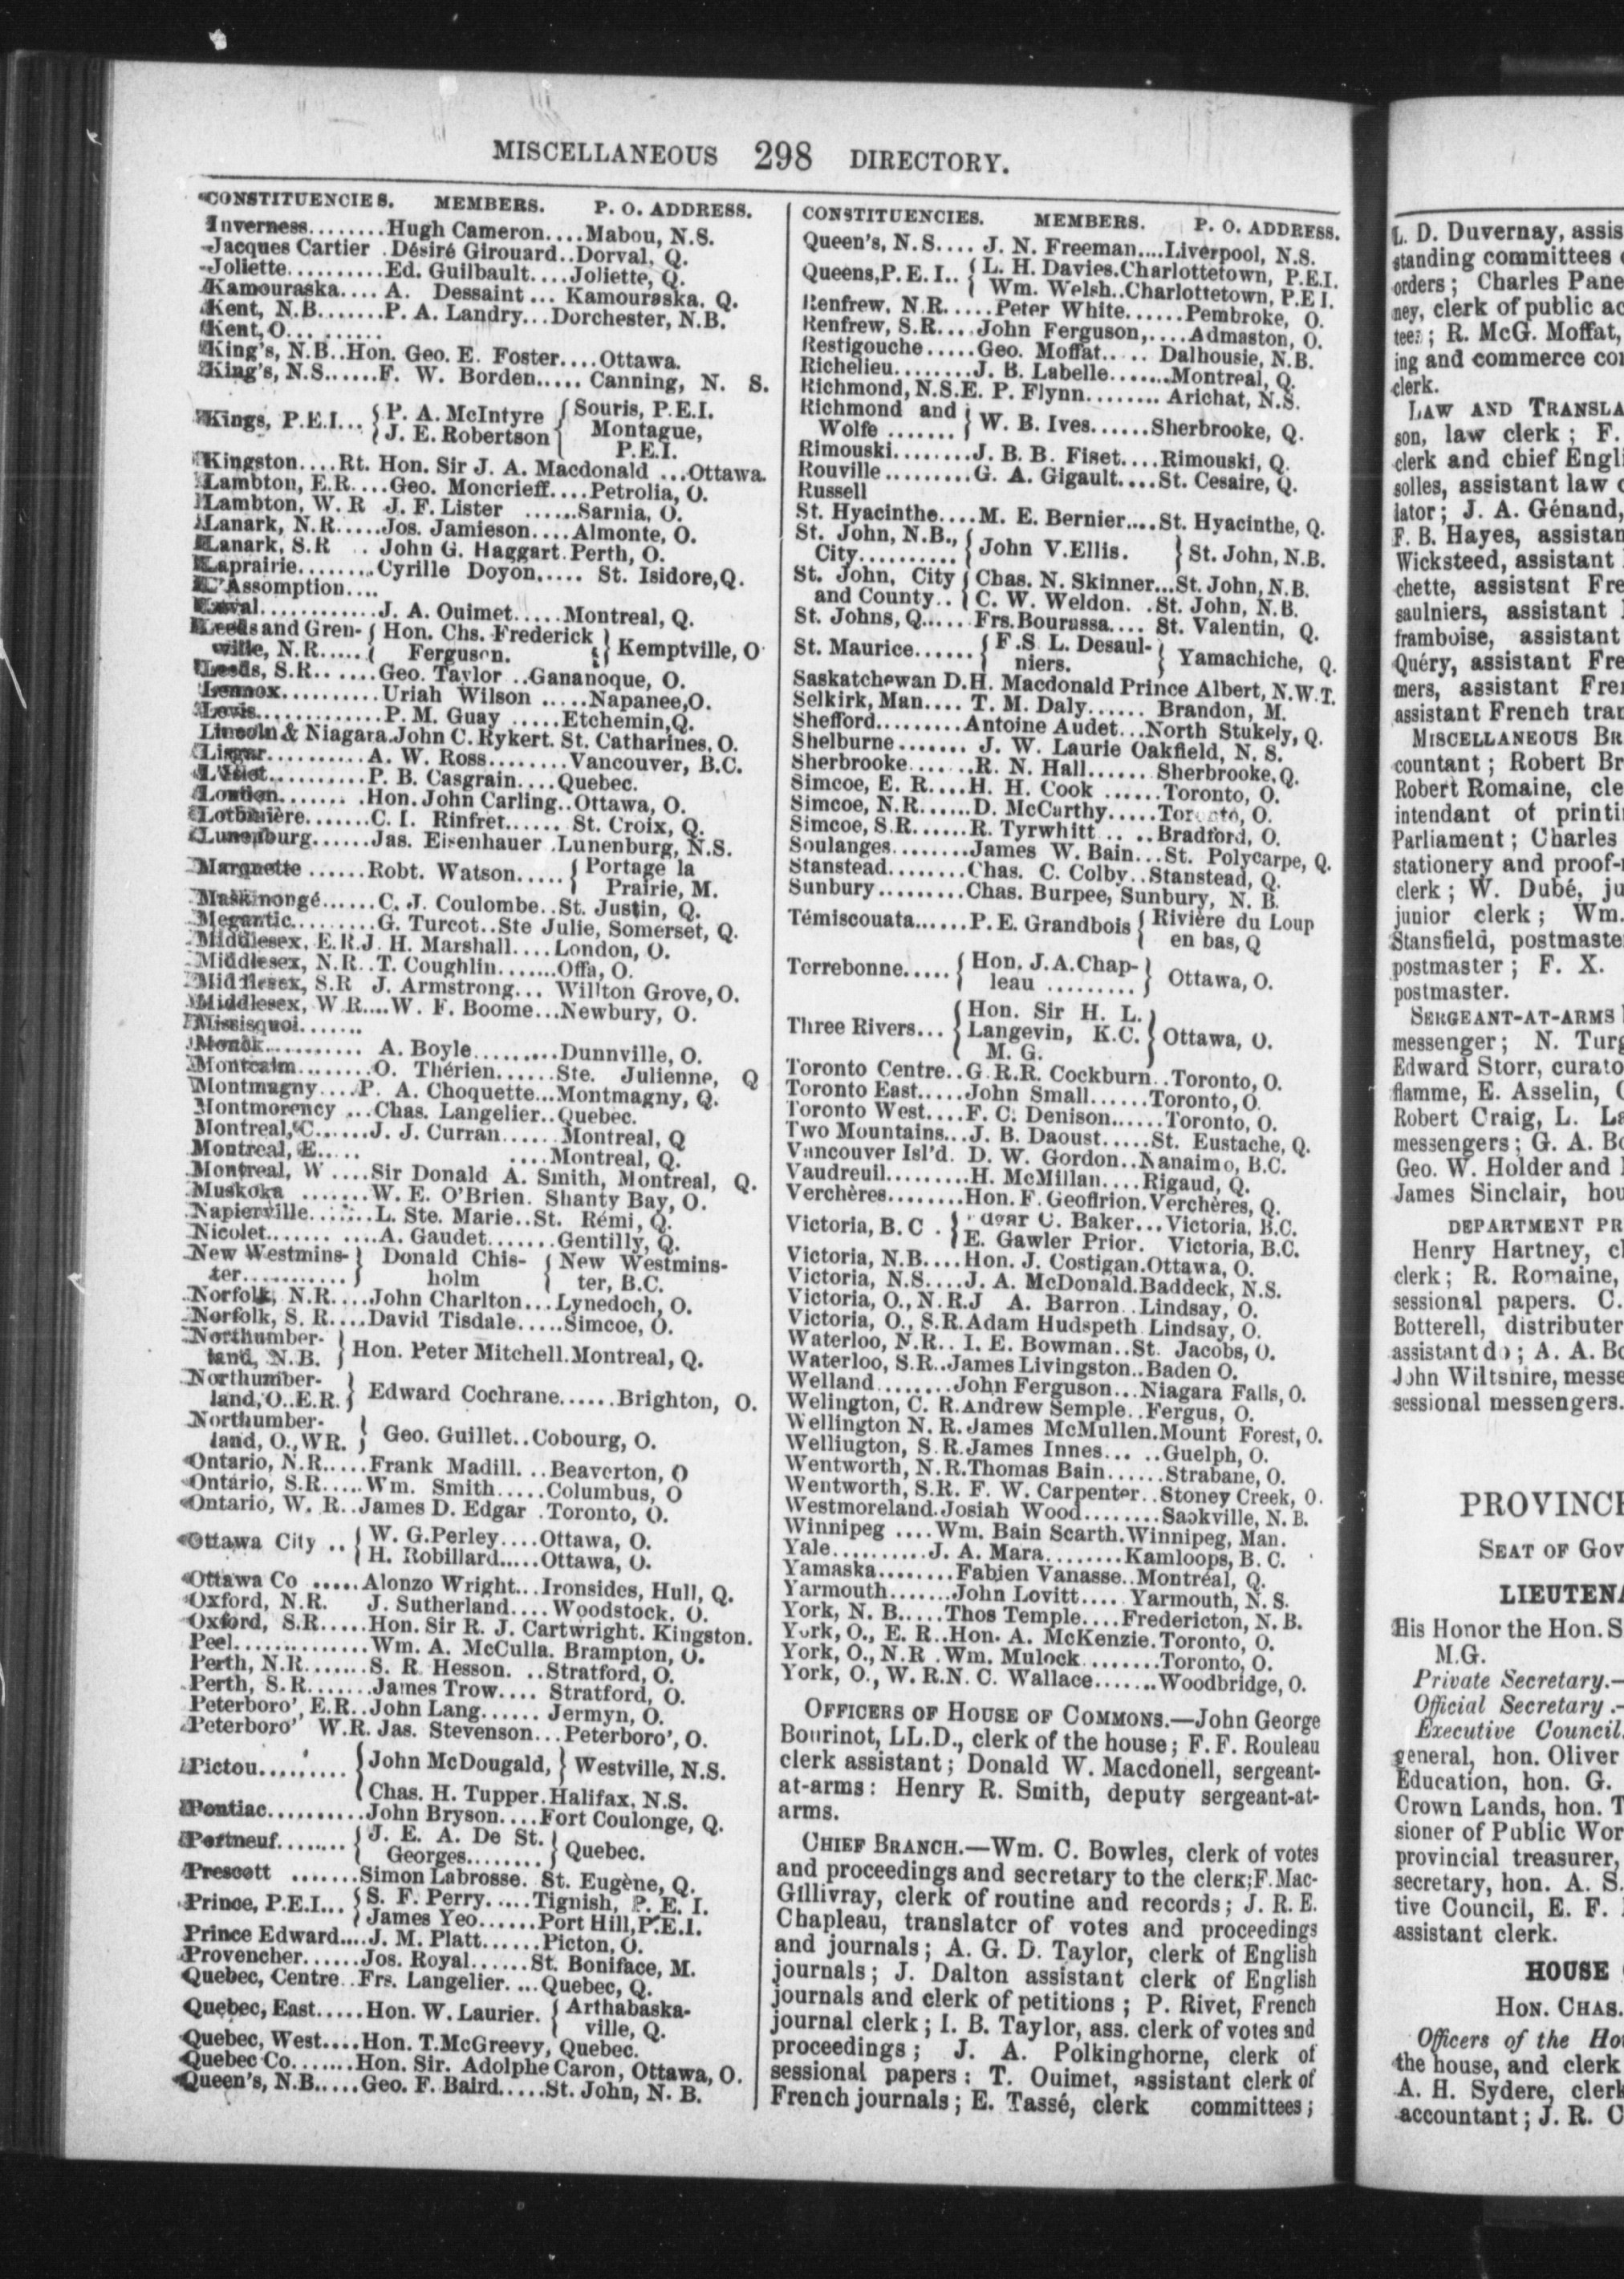 MISCELLANEOUS 298 DIRECTORY.
CONSTITUENCIES. MEMBERS. P. O. ADDRESS.
Inverness........Hugh Cameron....Mabou, N.S.
Jacques Cartier .Désiré Girouard..Dorval, Q.
Joliette..........Ed. Guilbault....Joliette, Q.
Kamouraska.... A. Dessaint... Kamouraska. Q.
Kent, N.B.......P. A. Landry...Dorchester, N.B.
Kent, O... ......
King's, N.B..Hon. Geo. E. Foster....Ottawa.
King's, N.S......F. W. Borden..... Canning, N. S.
Kings, P.E.I... { P. A. McIntyre { Souris, P.E.I.
{ J. E. Robertson { Montague,
P.E.I.
Kingston....Rt. Hon. Sir J. A. Macdonald ...Ottawa.
Lambton, E.R....Geo. Moncrieff....Petrolia, O.
Lambton, W. R J. F. Lister ......Sarnia, O.
Lanark, N.R.....Jos. Jamieson....Almonte, O.
Lanark, S.R .. John G. Haggart.Perth, O.
Laprairie........Cyrille Doyon..... St. Isidore,Q.
L'Assomption....
Laval............J. A. Ouimet.....Montreal, Q.
Leeds and Gren- { Hon. Chs. Frederick }
ville, N.R..... { Ferguson. } Kemptville, O
Leeds, S.R......Geo. Taylor ..Gananoque, O.
Lennox..........Uriah Wilson .....Napanee,O.
Levis.............P. M. Guay .....Etchemin,Q.
Lincoln & Niagara.John C. Rykert. St. Catharines, O.
Lisgar..........A. W. Ross........Vancouver, B.C.
L'Islet..........P. B. Casgrain....Quebec.
London....... .Hon. John Carling..Ottawa, O.
Lotbinière.......C. I. Rinfret...... St. Croix, Q.
Lunenburg......Jas. Eisenhauer .Lunenburg, N.S.
Marquette ......Robt. Watson..... { Portage la
{ Prairie, M.
Maskinongé......C. J. Coulombe..St. Justin, Q.
Megantic.........G. Turcot..Ste Julie, Somerset, Q.
Middlesex, E.R.J. H. Marshall....London, O.
Middlesex, N.R..T. Coughlin.......Offa, O.
Middlesex, S.R J. Armstrong... Willton Grove, O.
Middlesex, W.R....W. F. Boome...Newbury, O.
Missisquoi.......
Monck........... A. Boyle..........Dunnville, O.
Montcalm........O. Thérien......Ste. Julienne, Q
Montmagny....P. A. Choquette...Montmagny, Q.
Montmorency ...Chas. Langelier..Quebec.
Montreal, C......J. J. Curran.......Montreal, Q
Montreal, E..... ....Montreal, Q.
Montreal, W ....Sir Donald A. Smith, Montreal, Q.
Muskoka .......W. E. O'Brien. Shanty Bay, O.
Napierville.......L. Ste. Marie..St. Rémi, Q.
Nicolet....... ....A. Gaudet.......Gentilly, Q.
New Westmins- } Donald Chis- { New Westmins-
ter............ } holm { ter, B.C.
Norfolk, N.R....John Charlton...Lynedoch, O.
Norfolk, S. R....David Tisdale.....Simcoe, O.
Northumber- }
land, N.B. } Hon. Peter Mitchell.Montreal, Q.
Northumber- }
land, O..E.R. } Edward Cochrane......Brighton, O.
Northumber- }
land, O., WR. } Geo. Guillet..Cobourg, O.
Ontario, N.R.....Frank Madill. ..Beaverton, O
Ontario, S.R.....Wm. Smith.....Columbus, O
Ontario, W. R..James D. Edgar .Toronto, O.
Ottawa City .. { W. G.Perley....Ottawa, O.
{ H. Robillard.....Ottawa, O.
Ottawa Co .....Alonzo Wright...Ironsides, Hull, Q.
Oxford, N.R. J. Sutherland....Woodstock, O.
Oxford, S.R.....Hon. Sir R. J. Cartwright. Kingston.
Peel..............Wm. A. McCulla. Brampton, O.
Perth, N.R.......S. R. Hesson. ..Stratford, O.
Perth, S.R.......James Trow.... Stratford, O.
Peterboro', E.R..John Lang...... Jermyn, O.
Peterboro' W.R. Jas. Stevenson...Peterboro', O.
Pictou......... { John McDougald, } Westville, N.S.
{ Chas. H. Tupper.Halifax, N.S.
Pontiac..........John Bryson....Fort Coulonge, Q.
Portneuf........ { J. E. A. De St. }
{ Georges........ } Quebec.
Prescott .......Simon Labrosse. St. Eugène, Q.
Prince, P.E.I... { S. F. Perry.....Tignish, P. E. I.
{ James Yeo......Port Hill,P.E.I.
Prince Edward....J. M. Platt......Picton, O.
Provencher......Jos. Royal......St. Boniface, M.
Quebec, Centre..Frs. Langelier. ...Quebec, Q.
Quebec, East.....Hon. W. Laurier. { Arthabaska-
{ ville, Q.
Quebec, West....Hon. T.McGreevy, Quebec.
Quebec Co.......Hon. Sir. Adolphe Caron, Ottawa, O.
Queen's, N.B.....Geo. F. Baird.....St. John, N. B.
CONSTITUENCIES. MEMBERS. P. O. ADDRESS.
Queen's, N.S.... J. N. Freeman....Liverpool, N.S.
Queens,P.E.I.. { L. H. Davies.Charlottetown, P.E.I.
{ Wm. Welsh..Charlottetown, P.E I.
Renfrew, N.R.....Peter White......Pembroke, O.
Renfrew, S.R....John Ferguson,....Admaston, O.
Restigouche.....Geo. Moffat.. .. . Dalhousie, N.B.
Richelieu........J. B. Labelle.......Montreal, Q.
Richmond, N.S.E. P. Flynn........ Arichat, N.S.
Richmond and }
Wolfe ....... } W. B. Ives......Sherbrooke, Q.
Rimouski........J. B. B. Fiset....Rimouski, Q.
Rouville.........G. A. Gigault....St. Cesaire, Q.
Russell
St. Hyacinthe....M. E. Bernier....St. Hyacinthe, Q.
St. John, N.B., {
City.......... { John V.Ellis. } St. John, N.B.
St. John, City { Chas. N. Skinner...St. John, N.B.
and County.. { C. W. Weldon. .St. John, N.B.
St. Johns, Q..... Frs.Bourassa.... St. Valentin, Q.
St. Maurice...... { F.S L. Desaul- }
{ niers. } Yamachiche, Q.
Saskatchewan D.H. Macdonald Prince Albert, N.W.T.
Selkirk, Man.... T. M. Daly...... Brandon, M.
Shefford.........Antoine Audet...North Stukely, Q.
Shelburne ....... J. W. Laurie Oakfield, N. S.
Sherbrooke.......R. N. Hall...... Sherbrooke,Q.
Simcoe, E. R....H. H. Cook ......Toronto, O.
Simcoe, N.R......D. McCarthy.....Toronto, O.
Simcoe, S.R......R. Tyrwhitt .. ..Bradford, O.
Soulanges........James W. Bain...St. Polycarpe, Q.
Stanstead........Chas. C. Colby..Stanstead, Q.
Sunbury.........Chas. Burpee, Sunbury, N. B.
Témiscouata......P. E. Grandbois { Rivière du Loup
{ en bas, Q
Terrebonne..... { Hon. J.A.Chap- }
{ leau ......... } Ottawa, O.
{ Hon. Sir H. L. }
Three Rivers... { Langevin, K.C. } Ottawa, O.
{ M. G. }
Toronto Centre..G R.R. Cockburn..Toronto, O.
Toronto East.....John Small......Toronto, O.
Toronto West....F. C. Denison......Toronto, O.
Two Mountains...J. B. Daoust.....St. Eustache, Q.
Vancouver Isl'd. D. W. Gordon..Nanaimo, B.C.
Vaudreuil.........H. McMillan....Rigaud, Q.
Verchères........Hon. F. Geoffrion.Verchères, Q.
Victoria, B. C . { dgar C. Baker...Victoria, B.C.
{ E. Gawler Prior. Victoria, B.C.
Victoria, N.B....Hon. J. Costigan.Ottawa, O.
Victoria, N.S....J. A. McDonald.Baddeck, N.S.
Victoria, O., N.R.J A. Barron. .Lindsay, O.
Victoria, O., S.R.Adam Hudspeth Lindsay, O.
Waterloo, N.R.. I. E. Bowman..St. Jacobs, O.
Waterloo, S.R..James Livingston..Baden O.
Welland........John Ferguson...Niagara Falls, O.
Welington, C. R.Andrew Semple..Fergus, O.
Wellington N. R. James McMullen.Mount Forest, O.
Welliugton, S.R.James Innes... ..Guelph, O.
Wentworth, N.R.Thomas Bain......Strabane, O.
Wentworth, S.R. F. W. Carpenter..Stoney Creek, O.
Westmoreland.Josiah Wood........Sackville, N. B.
Winnipeg ....Wm. Bain Scarth.Winnipeg, Man.
Yale..........J. A. Mara........Kamloops, B. C.
Yamaska........Fabien Vanasse..Montréal, Q.
Yarmouth.......John Lovitt.... Yarmouth, N. S.
York, N. B.....Thos Temple....Fredericton, N. B.
York, O., E. R..Hon. A. McKenzie.Toronto, O.
York, O., N.R .Wm. Mulock........Toronto, O.
York, O., W. R.N. C. Wallace.......Woodbridge, O.
OFFICERS OF HOUSE OF COMMONS.—John George
Bourinot, LL.D., clerk of the house; F. F. Rouleau
clerk assistant; Donald W. Macdonell, sergeant-
at-arms: Henry R. Smith, deputy sergeant-at-
arms.
CHIEF BRANCH.—Wm. C. Bowles, clerk of votes
and proceedings and secretary to the clerk;F. Mac-
Gillivray, clerk of routine and records; J. R. E.
Chapleau, translater of votes and proceedings
and journals; A. G. D. Taylor, clerk of English
journals; J. Dalton assistant clerk of English
journals and clerk of petitions ; P. Rivet, French
journal clerk; I. B. Taylor, ass. clerk of votes and
proceedings; J. A. Polkinghorne, clerk of
sessional papers: T. Ouimet, assistant clerk of
French journals; E. Tassé, clerk committees;
L. D. Duvernay, assis
standing committees
orders; Charles Pane
ney, clerk of public ac
tees; R. McG. Moffat,
ing and commerce co
clerk.
LAW AND TRANSLA
son, law clerk; F.
clerk and chief Engli
solles, assistant law
lator; J. A. Génand,
F. B. Hayes, assistan
Wicksteed, assistant
chette, assistsnt Fre
saulniers, assistant
framboise, assistant
Quéry, assistant Fre
mers, assistant Fre
assistant French tran
MISCELLANEOUS BR
countant; Robert Br
Robert Romaine, cle
intendant of printi
Parliament; Charles
stationery and proof-
clerk; W. Dubé, ju
junior clerk; Wm.
Stansfield, postmaste
postmaster; F. X.
postmaster.
SERGEANT-AT-ARMS
messenger; N. Turg
Edward Storr, curato
flamme, E. Asselin,
Robert Craig, L. La
messengers; G. A. Bo
Geo. W. Holder and
James Sinclair, hou
DEPARTMENT PR
Henry Hartney, cl
clerk; R. Romaine,
sessional papers. C.
Botterell, distributer
assistant do; A. A. Bo
John Wiltshire, messe
sessional messengers.
PROVINCE
SEAT OF GOV
LIEUTENA
His Honor the Hon. S
M.G.
Private Secretary.—
Official Secretary .—
Executive Council.
general, hon. Oliver
Education, hon. G.
Crown Lands, hon. T
sioner of Public Wor
provincial treasurer,
secretary, hon. A. S.
tive Council, E. F.
assistant clerk.
HOUSE
HON. CHAS.
Officers of the Hou
the house, and clerk
A. H. Sydere, clerk
accountant; J. R. C